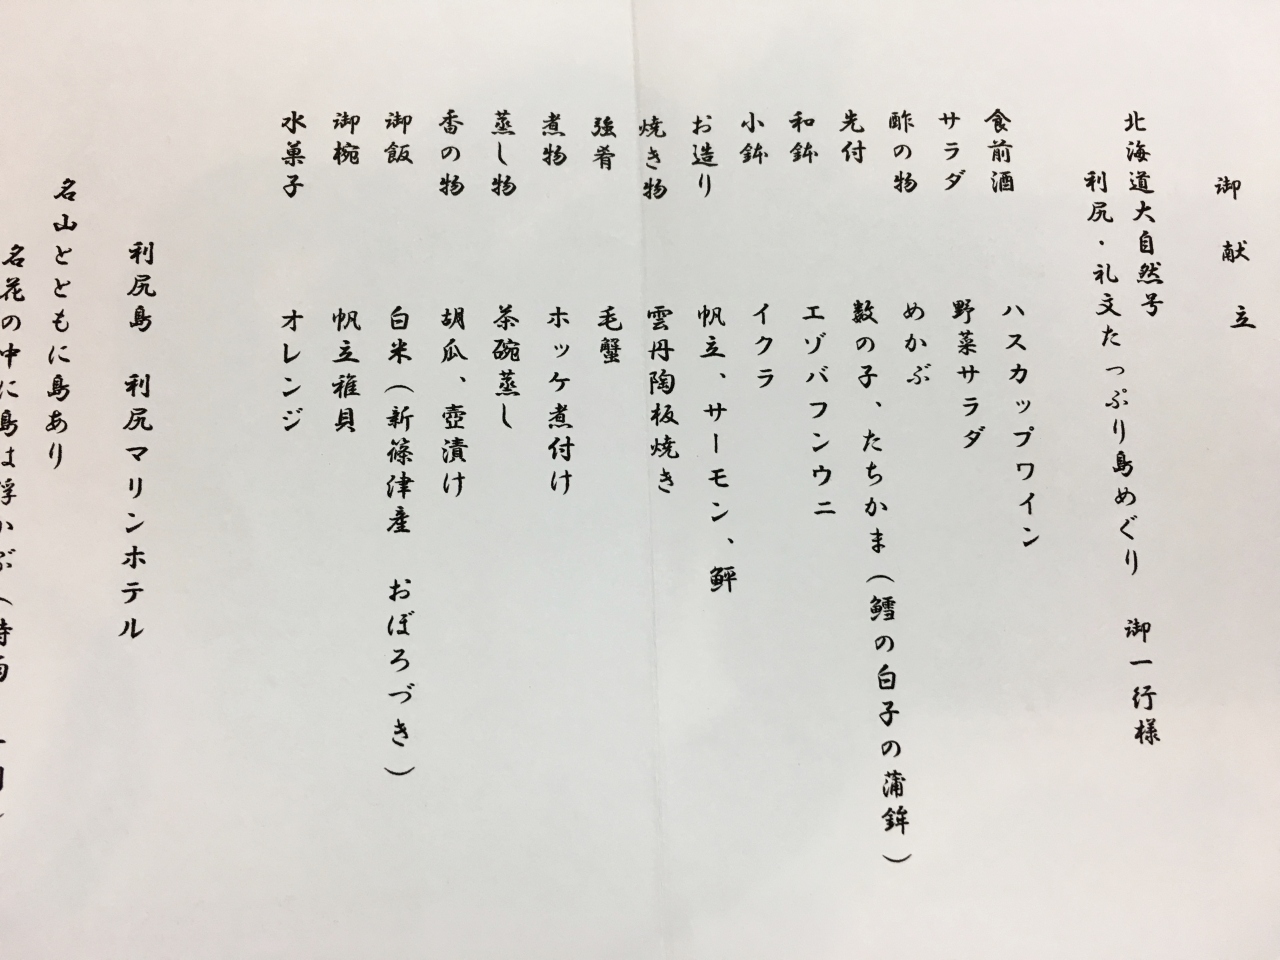 御献立
北海道大自然号
利尻・礼文たっぷり島めぐり 御一行様
食前酒 ハスカップワイン
サラダ 野菜サラダ
酢の物 めかぶ
先付 数の子、たちかま(鱈の白子の蒲鉾)
和鉢 エゾバフンウニ
小鉢 イクラ
お造り 帆立、サーモン、鮃
焼き物 雲丹陶板焼き
強肴 毛蟹
煮物 ホッケ煮付け
蒸し物 茶碗蒸し
香の物 胡瓜、壺漬け
御飯 白米(新篠津産 おぼろづき)
御椀 帆立稚貝
水菓子 オレンジ
利尻島 利尻マリンホテル
名山とともに島あり
名花の中に島は浮かぶ(時雨